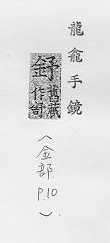 龍龕手鏡
舊藏
作舒
(金部 P.10)